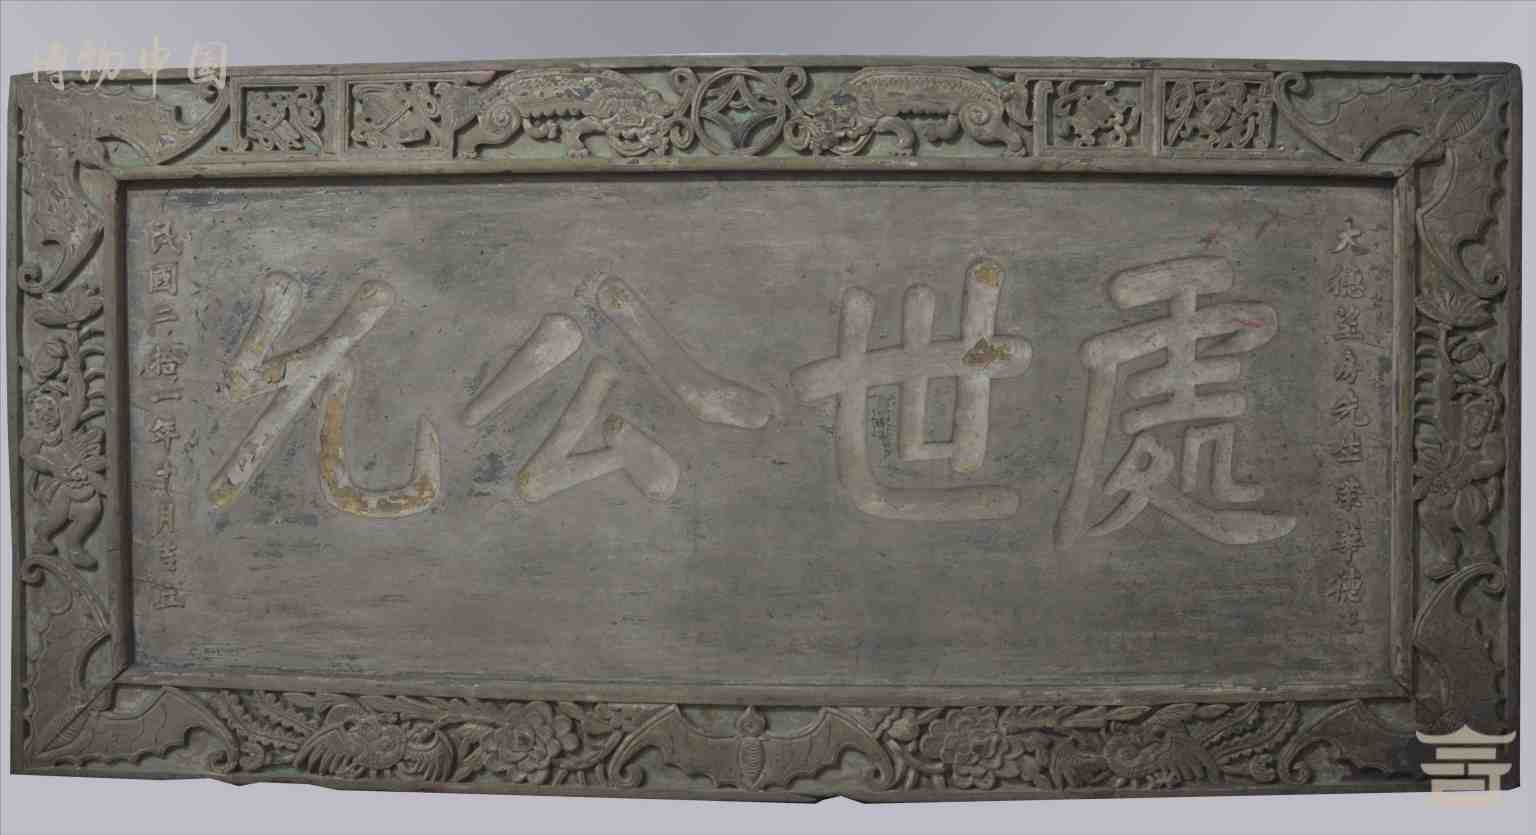 博物中国
大德望
先生榮
處世公允
民國二拾一年十月吉立